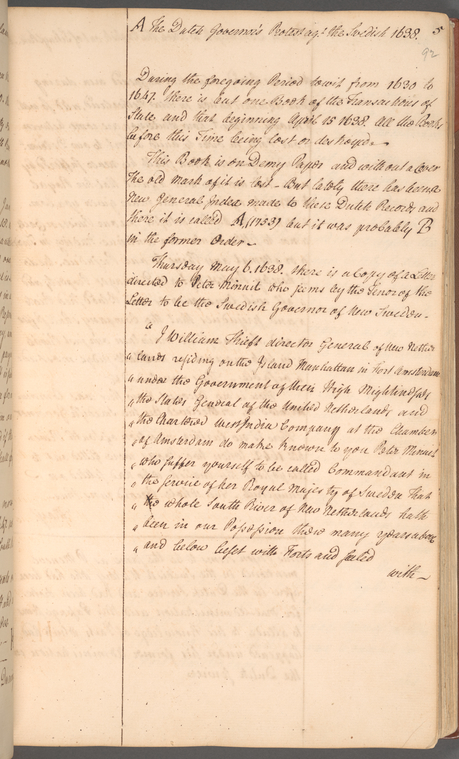 A The Dutch Governor's Protest agt. the Swedish 1638. 5
92
During the foregoing Period towit from 1630 to
1647. there is but one Book of the Transactions of
State and that beginning April 15 1638. All the Books
before this Time being lost or destroyed.
This Book is on Demy Paper and without a Cover
The old mark of it is lost – But lately there has been a
New General Index made to these Dutch Records and
there it is called A (1753) but it was probably B
in the former Order –
Thursday May 6. 1638. there is a Copy of a Letter
directed to Peter Minuit who seems by the Tenor of the
Letter to be the Swedish Governor of New Sweden –
" I William Kieft director General of New Nether
" lands residing on the Island Manhattan in Fort Amsterdam
" under the Government of their High Mightinesses
" the States General of the United Netherlands and
" the Chartered West India Company at the Chamber
" of Amsterdam do make known to you Peter Minuit
" who suffer yourself to be called Commandant in
" the service of her Royal Majesty of Sweden That
" the whole South River of New Netherlands hath
" been in our Possession these many years above
" and below beset with Forts and sealed
with –